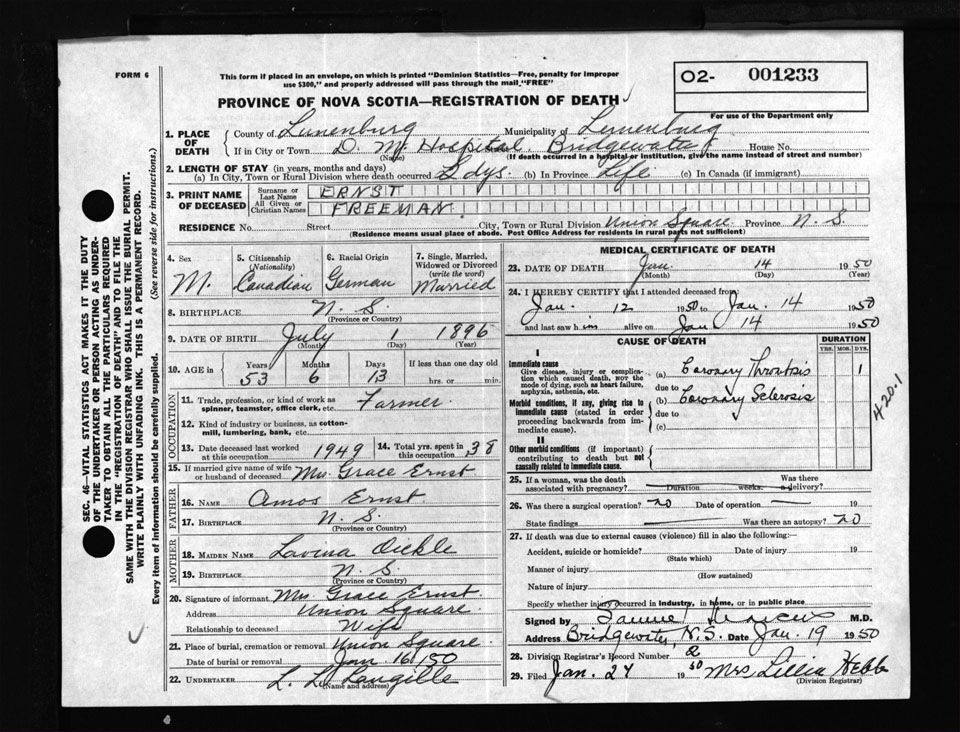 FORM 6
This form if placed in an envelope, on which is printed "Dominion Statistics—Free, penalty for improper
use $300," and properly addressed will pass through the mail "FREE"
O2- 001233
PROVINCE OF NOVA SCOTIA—REGISTRATION OF DEATH
For use of the Department only
1. PLACE OF DEATH
County of Lunenburg Municipality of Lunenburg
If in City or Town D. M. Hospital, Bridgewater House No.
(Name) (If death occurred in a hospital or institution, give the name instead of street and number)
2. LENGTH OF STAY (in years, months and days)
(a) In City, Town or Rural Division where death occurred 2 dys. (b) In Province Life (c) In Canada (if immigrant)
3. PRINT NAME OF DECEASED
Surname or Last Name ERNST
All Given or Christian Names FREEMAN
RESIDENCE No. Street City, Town or Rural Division Union Square Province N. S.
(Residence means usual place of abode. Post Office Address for residents in rural parts not sufficient)
4. Sex M.
5. Citizenship (Nationality) Canadian
6. Racial Origin German
7. Single, Married, Widowed or Divorced (write the word) Married
8. BIRTHPLACE N. S.
(Province or Country)
9. DATE OF BIRTH July 1 1896
(Month) (Day) (Year)
10. AGE in Years 53 Months 6 Days 13 If less than one day old hrs. or min.
OCCUPATION
11. Trade, profession, or kind of work as spinner, teamster, office clerk, etc. Farmer
12. Kind of industry or business, as cotton-mill, lumbering, bank, etc.
13. Date deceased last worked at this occupation 1949 14. Total yrs. spent in this occupation 38
15. If married give name of wife or husband of deceased Mrs Grace Ernst
FATHER
16. NAME Amos Ernst
17. BIRTHPLACE N. S.
(Province or Country)
MOTHER
18. MAIDEN NAME Lavina Eickle
19. BIRTHPLACE N. S.
(Province or Country)
20. Signature of informant Mrs Grace Ernst.
Address Union Square
Relationship to deceased Wife
21. Place of burial, cremation or removal Union Square
Date of burial or removal Jan 16/50
22. UNDERTAKER L. L. Langille
(Name and address)
MEDICAL CERTIFICATE OF DEATH
23. DATE OF DEATH Jan. 14 1950
(Month) (Day) (Year)
24. I HEREBY CERTIFY that I attended deceased from
Jan. 12 1950 to Jan. 14 1950
and last saw him alive on Jan 14 1950
CAUSE OF DEATH
DURATION
YRS. MOS. DYS.
I
Immediate cause
Give disease, injury or complication which caused death, NOT the mode of dying, such as heart failure, asphyxia, asthenia, etc.
(a) Coronary Thrombosis 1
due to
Morbid conditions, if any, giving rise to immediate cause (stated in order proceeding backwards from immediate cause).
(b) Coronary Sclerosis
due to
(c)
II
Other morbid conditions (if important) contributing to death but not causally related to immediate cause.
420.1
25. If a woman, was the death associated with pregnancy? Duration weeks. Was there a delivery?
26. Was there a surgical operation? no Date of operation 19
State findings Was there an autopsy? no
27. If death was due to external causes (violence) fill in also the following:—
Accident, suicide or homicide? Date of injury 19
(State which)
Manner of injury
(How sustained)
Nature of injury
Specify whether injury occurred in industry, in home, or in public place
Signed by M.D.
Address Bridgewater, N.S. Date Jan. 19 1950
28. Division Registrar's Record Number 2
29. Filed Jan. 27 1950 Mrs Lillia Hebb
(Division Registrar)
SEC. 46—VITAL STATISTICS ACT MAKES IT THE DUTY
OF THE UNDERTAKER OR PERSON ACTING AS UNDER-
TAKER TO OBTAIN ALL THE PARTICULARS REQUIRED
IN THE "REGISTRATION OF DEATH" AND TO FILE THE
SAME WITH THE DIVISION REGISTRAR WHO SHALL ISSUE THE BURIAL PERMIT.
WRITE PLAINLY WITH UNFADING INK. THIS IS A PERMANENT RECORD.
Every item of information should be carefully supplied. (See reverse side for instructions.)